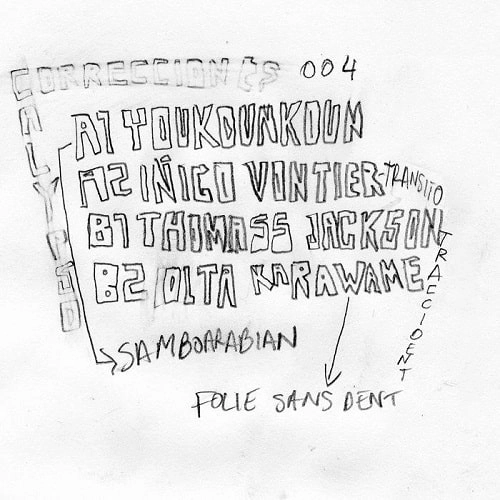 CORRECCIONES 004
CALYPSO
A1 YOUKOUNKOUN
A2 IÑIGO VINTIER-TRANSITO
B1 THOMASS JACKSON
TRAECIDENT
B2 OLTA KARAWAME
SAMBOARABIAN
FOLIE SANS DENT